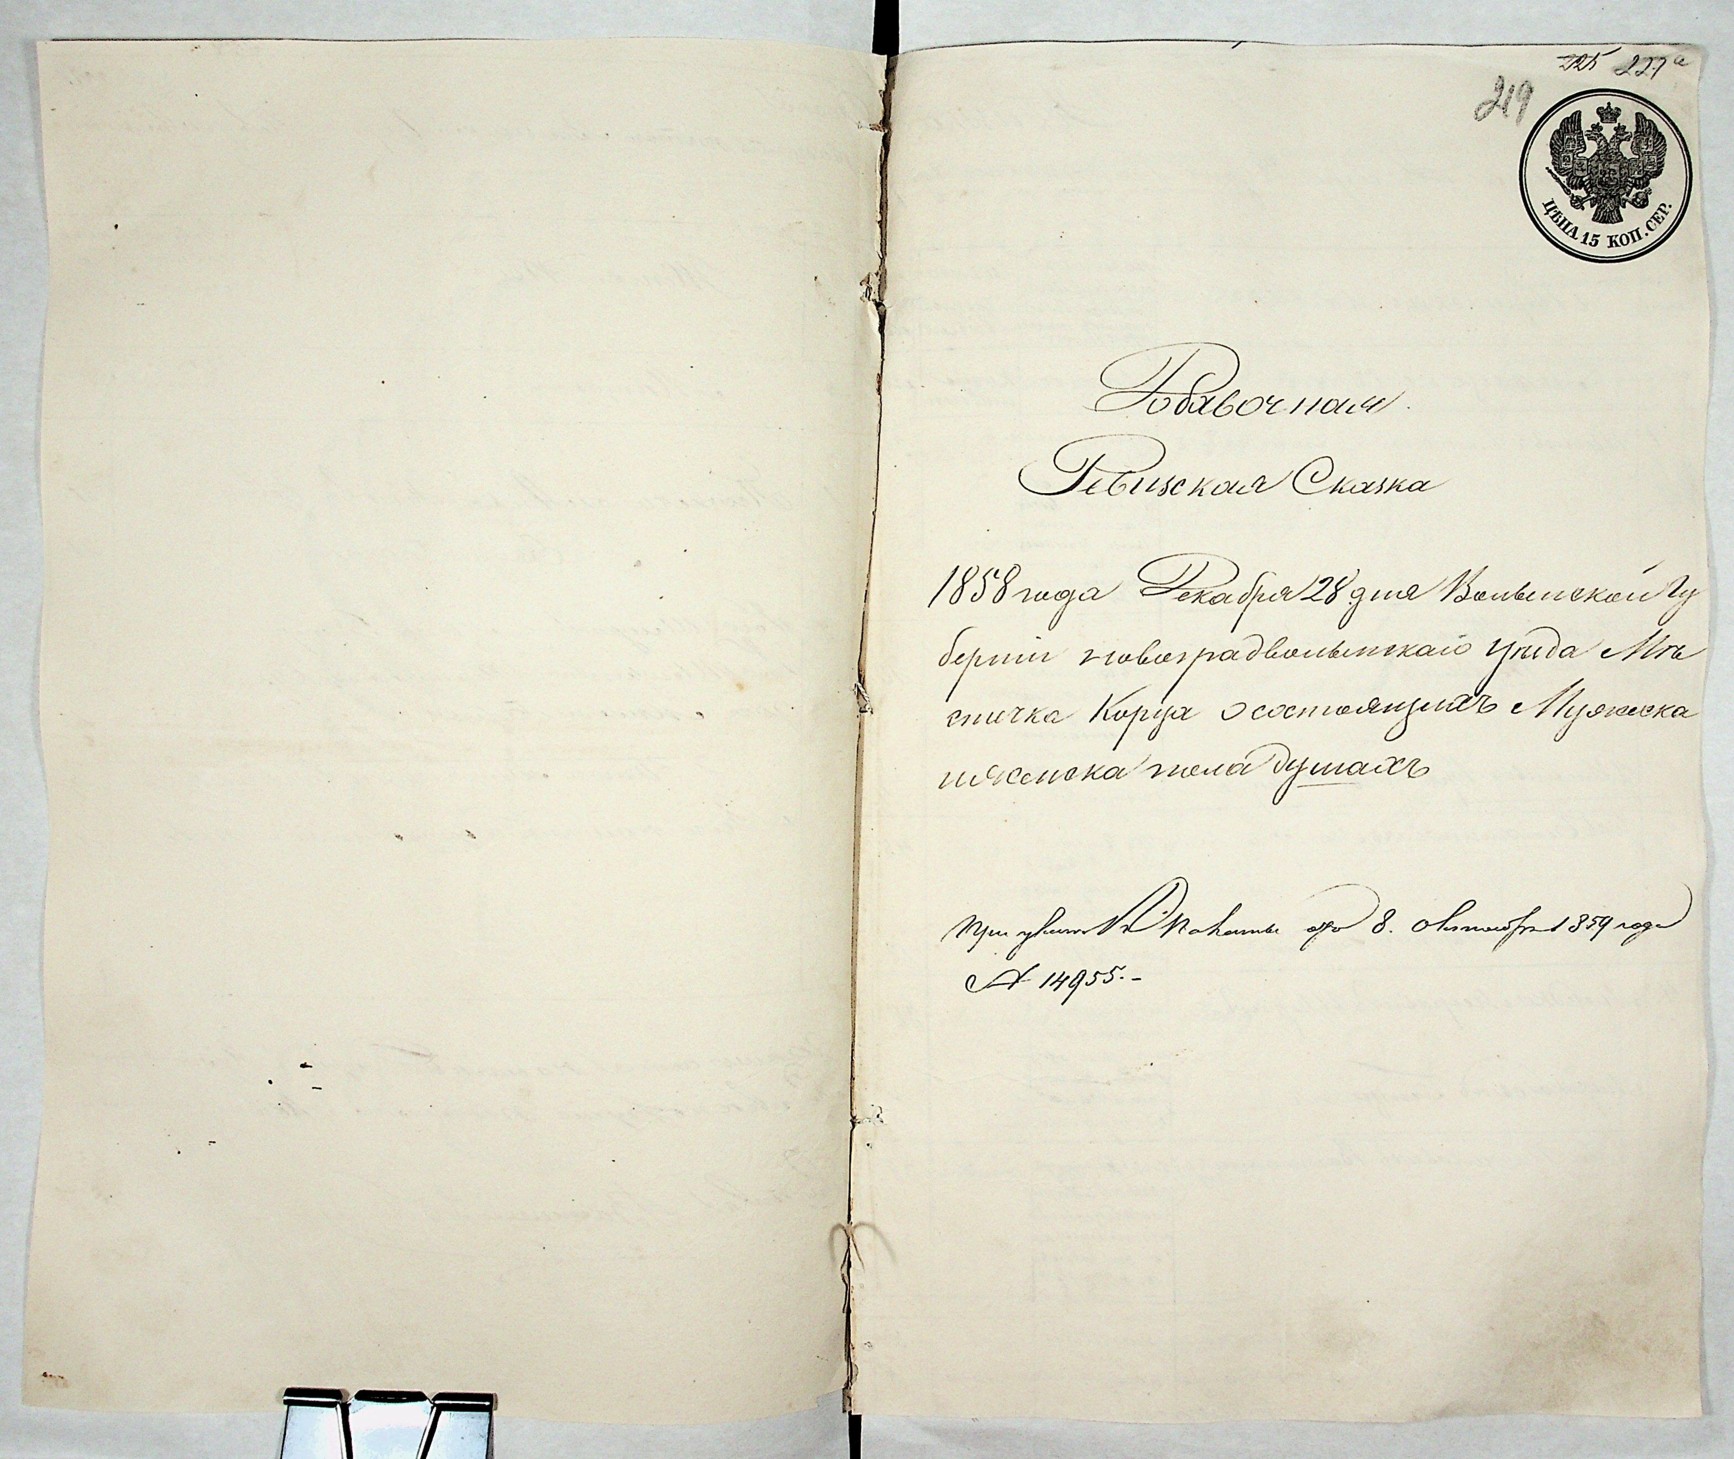 225 227а
219
ЦѢНА 15 КОП. СЕР.
Добавочная
Ревизская Сказка
1858 года Декабря 28 дня Волынской Гу
берніи новоградволынскаго уѣзда Мѣ
стичка Корца о состоящихъ Мужеска
и женска пола душахъ
При указѣ К. Палаты отъ 8. октября 1859 года
№ 14955.-